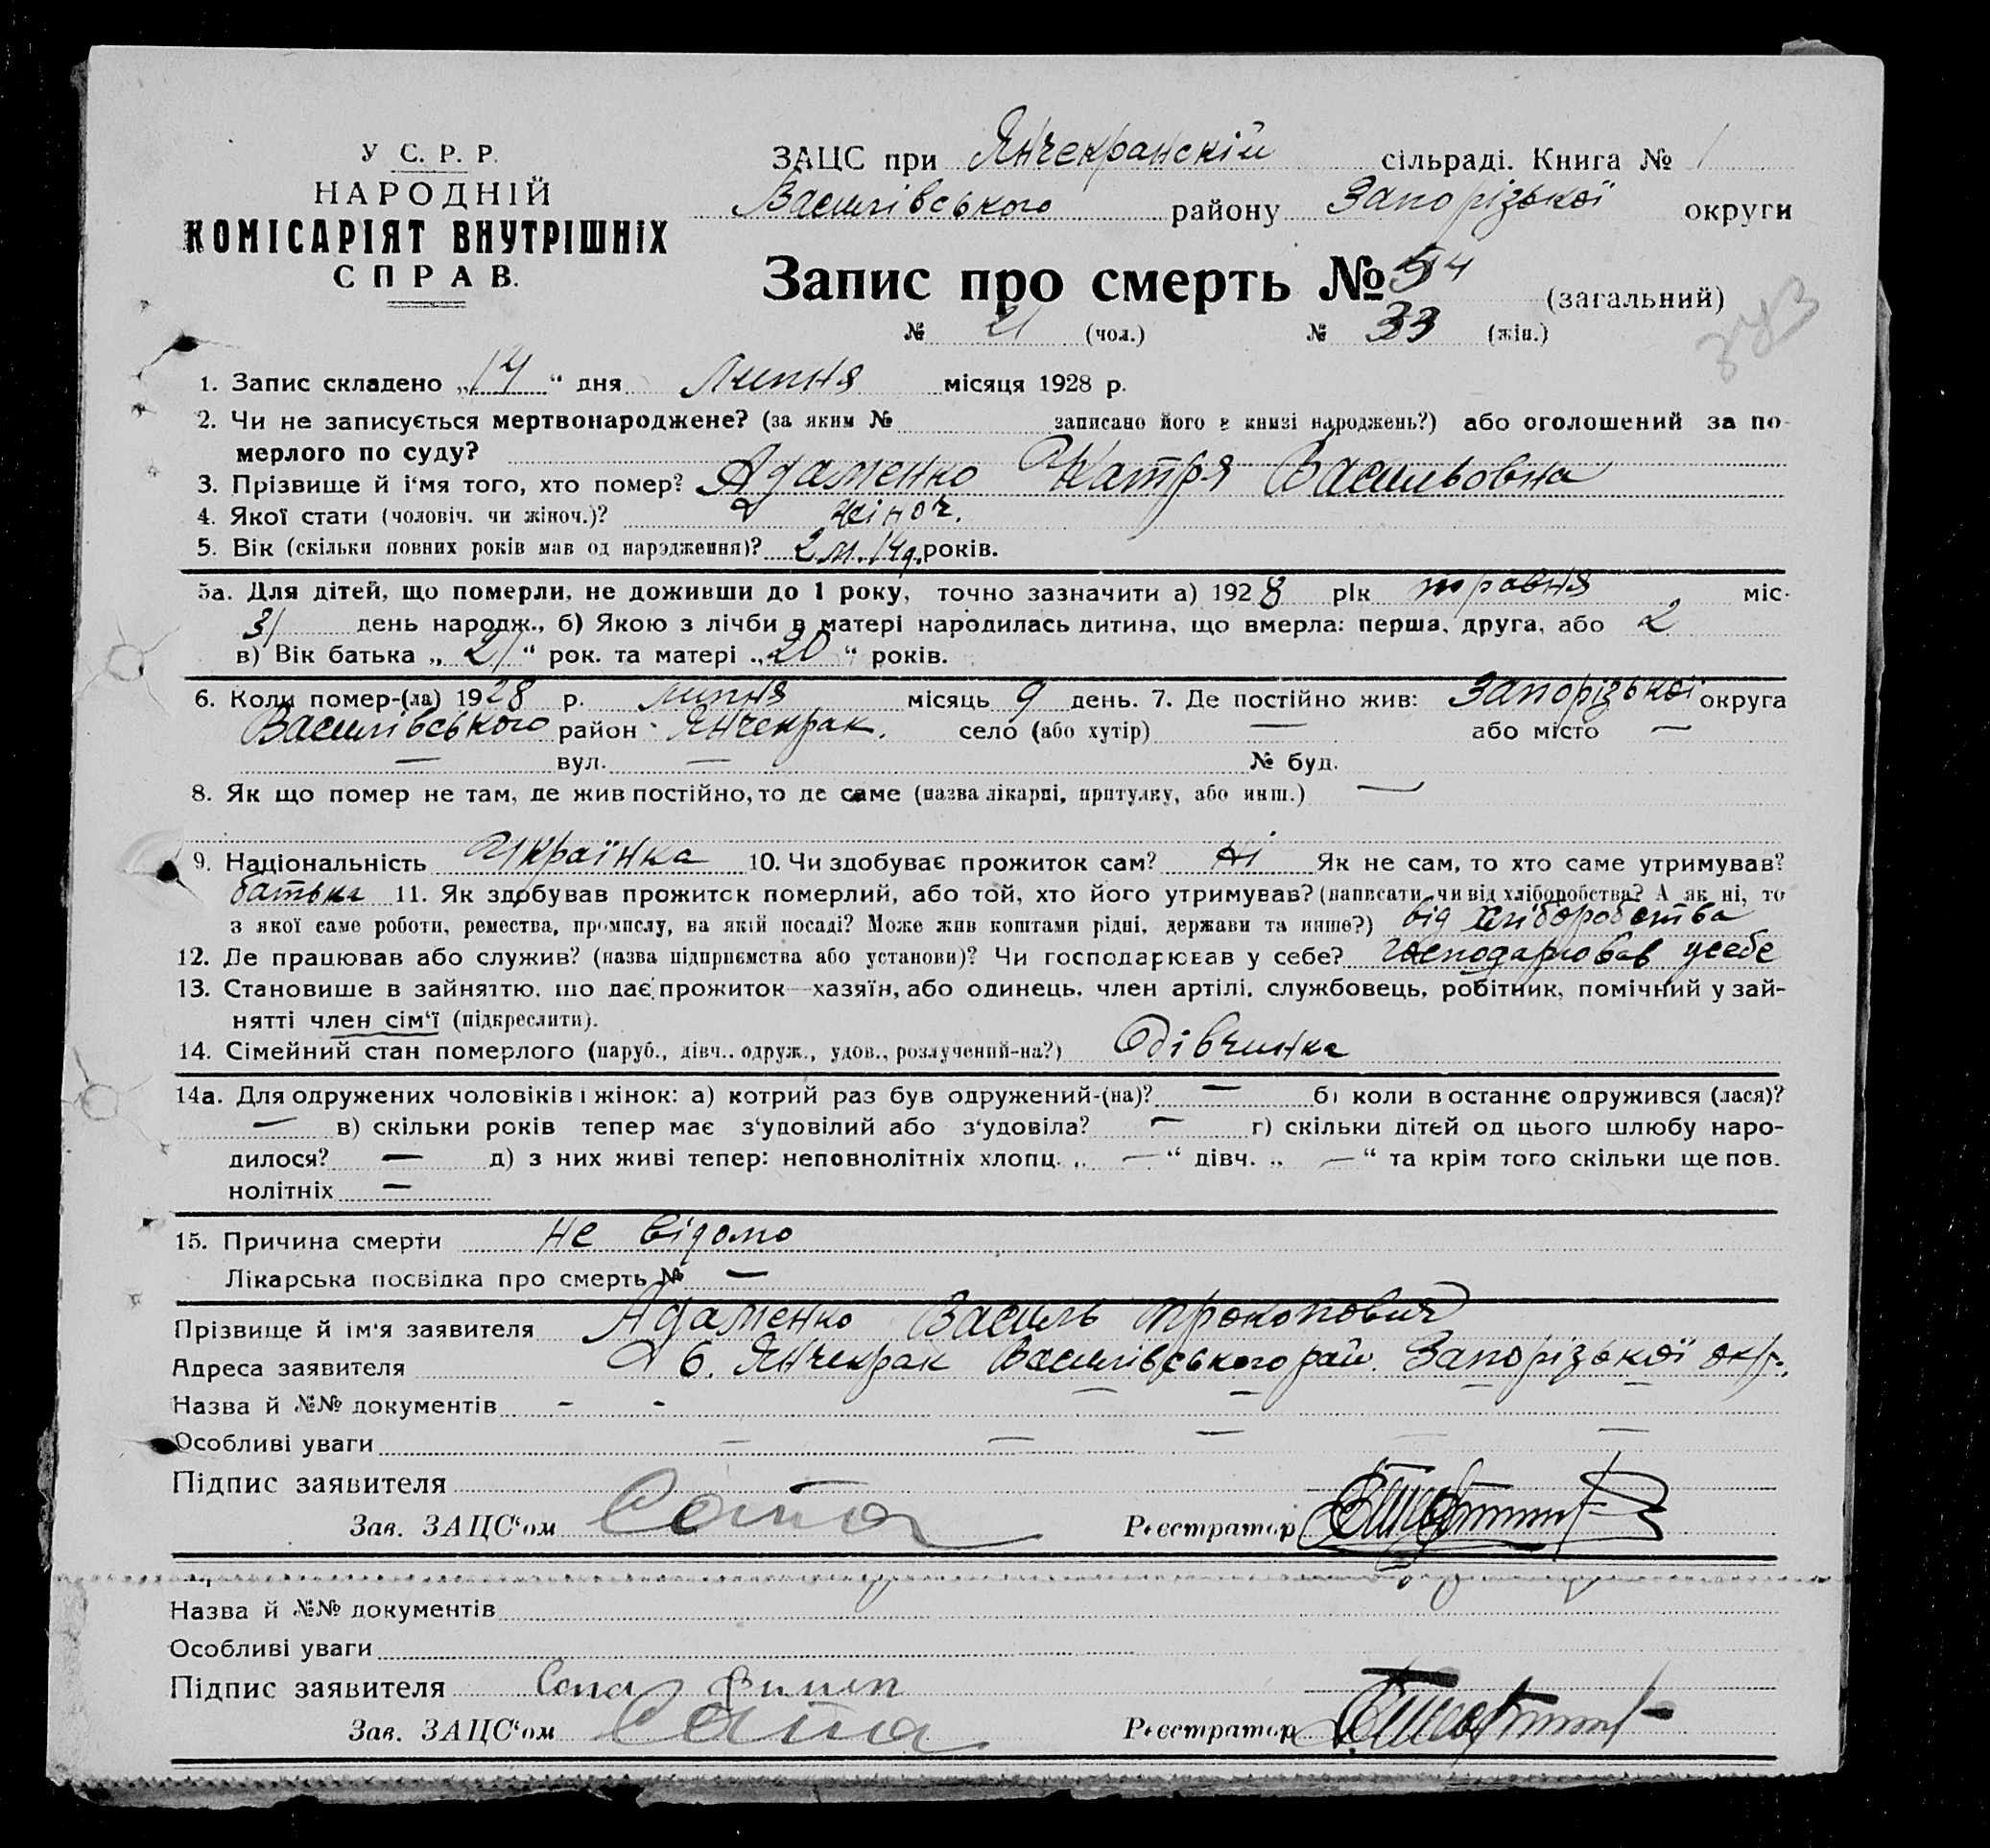 У С. Р. Р.
НАРОДНІЙ
КОМІСАРІЯТ ВНУТРІШНІХ
СПРАВ.
ЗАЦС при Янчекранскій сільраді. Книга № 1
Василівського району Запорізької округи
Запис про смерть № 54 (загальний)
№ 21 (чол.) № 33 (жін.)
343
1. Запис складено „14“ дня липня місяця 1928 р.
2. Чи не записується мертвонароджене? (за яким № записано його в книзі народжень?) або оголошений за по-
мерлого по суду?
3. Прізвище й і'мя того, хто помер? Адаменко Катря Васильовна
4. Якої стати (чоловіч. чи жіноч.)? жіноч.
5. Вік (скільки повних років мав од народження)? 2 м. 14 д. років.
5а. Для дітей, що померли, не доживши до 1 року, точно зазначити а) 1928 рік травня міс.
31 день народж., б) Якою з лічби в матері народилась дитина, що вмерла: перша, друга, або 2
в) Вік батька „21“ рок. та матері „20“ років.
6. Коли помер-(ла) 1928 р. липня місяць 9 день. 7. Де постійно жив: Запорізької округа
Василівського район Янчекрак. село (або хутір) — або місто —
— вул. — № буд.
8. Як що помер не там, де жив постійно, то де саме (назва лікарні, притулку, або инш.) —
9. Національність Українка 10. Чи здобуває прожиток сам? ні Як не сам, то хто саме утримував?
батько 11. Як здобував прожиток померлий, або той, хто його утримував? (написати чи від хліборобства? А як ні, то
з якої саме роботи, ремества, промислу, на якій посаді? Може жив коштами рідні, держави та инше?) від хліборобства
12. Де працював або служив? (назва підприємства або установи)? Чи господарював у себе? господарював усебе
13. Становише в зайняттю, що дає прожиток—хазяїн, або одинець, член артілі, службовець, робітник, помічний у зай-
нятті член сім'ї (підкреслити).
14. Сімейний стан померлого (паруб., дівч.. одруж., удов., розлучений-на?) дівчинка
14а. Для одружених чоловіків і жінок: а) котрий раз був одружений-(на)? — б) коли в останнє одружився (лася)?
— в) скільки років тепер має з'уповілий або з'удовіла? — г) скільки дітей од цього шлюбу наро-
дилося? — д) з них живі тепер: неповнолітніх хлопц. „ — “ дівч. „ — “ та крім того скільки ще пов.
нолітніх —
15. Причина смерти не відомо
Лікарська посвідка про смерть № —
Прізвище й ім'я заявителя Адаменко Василь Прокопович
Адреса заявителя с. Янчекрак Василівського рай. Запорізької окр.
Назва й №№ документів - - — — — —
Особливі уваги — — — — —
Підпис заявителя
Зав. ЗАЦС'ом Сапа Реєстратор
Назва й №№ документів
Особливі уваги
Підпис заявителя Сапа
Зав. ЗАЦС'ом Сапа Реєстратор